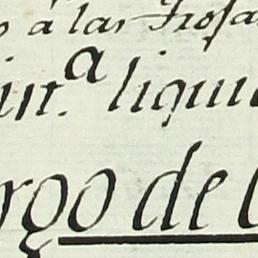 a las
int.ª liqui
rgo de